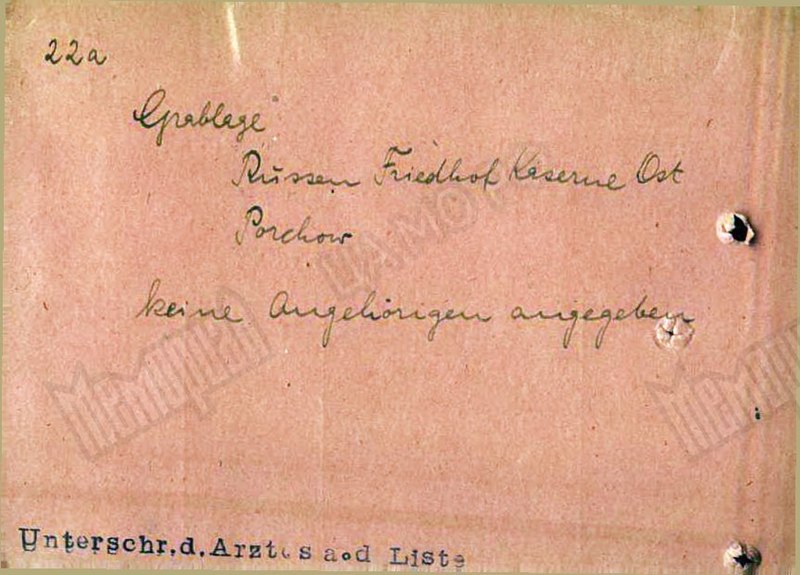 22a
Grablage
Russen Friedhof Kaserne Ost
Porchow
keine Angehörigen angegeben
Мемориал
ЦАМО
Мемориал
Unterschr.d.Arztes a.d Liste